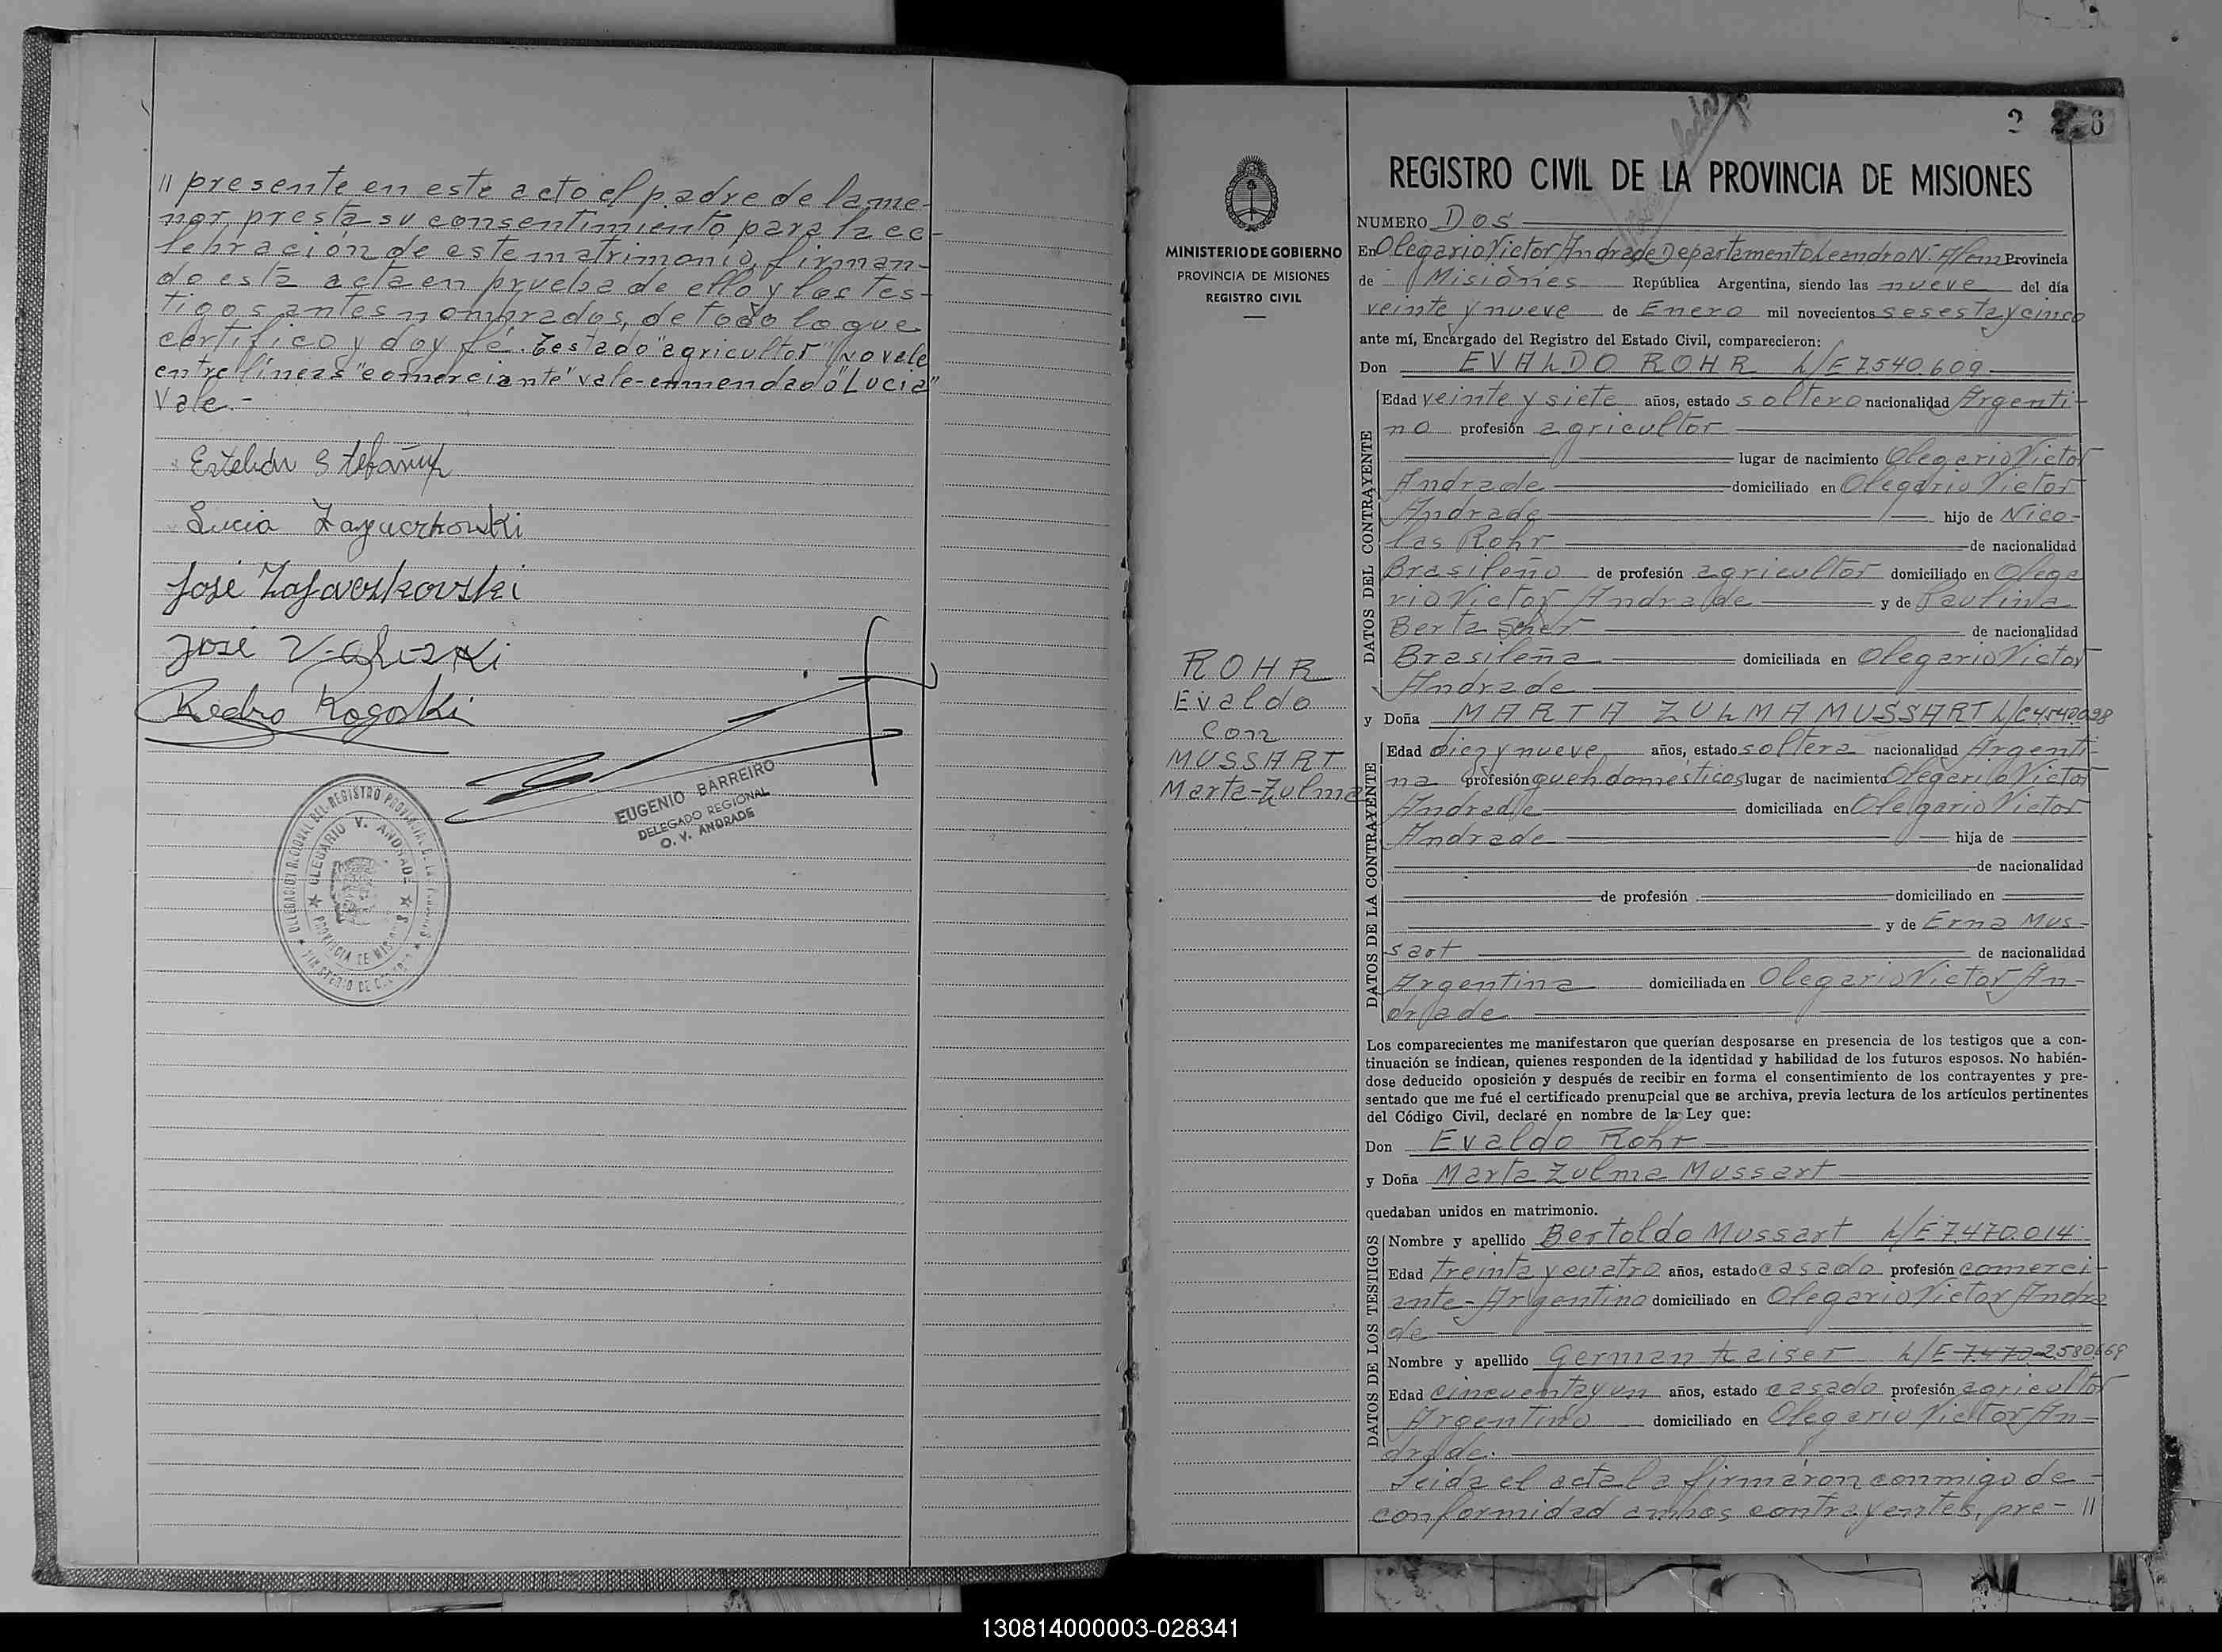 // presente en este acto el padre de la me-
nor presta su consentimiento para la ce-
lebración de este matrimonio, firman-
do esta acta en prueba de ello y los tes-
tigos antes nombrados, de todo lo que
certifico y doy fé. Testado "agricultor" no vale
entre líneas "comerciante" vale-enmendado "Lucia"
Vale.-
Esteban
Lucia
José
José
Pedro Rogoski
EUGENIO BARREIRO
DELEGADO REGIONAL
O. V. ANDRADE
2 6
REGISTRO CIVIL DE LA PROVINCIA DE MISIONES
MINISTERIO DE GOBIERNO
PROVINCIA DE MISIONES
REGISTRO CIVIL
NUMERO Dos
En Olegario Victor Andrade Departamento Leandro N. Alem Provincia
de Misiones República Argentina, siendo las nueve del día
veinte y nueve de Enero mil novecientos sesesta y cinco
ante mí, Encargado del Registro del Estado Civil, comparecieron:
Don EVALDO ROHR L/E 7540.609
DATOS DEL CONTRAYENTE
Edad veinte y siete años, estado soltero nacionalidad Argenti-
no profesión agricultor
lugar de nacimiento Olegario Victor
Andrade domiciliado en Olegario Victor
Andrade hijo de Nico-
las Rohr de nacionalidad
Brasileño de profesión agricultor domiciliado en Olega
rio Victor Andrade y de Paulina
Berta Scher de nacionalidad
Brasileña domiciliada en Olegario Victor
Andrade
ROHR
Evaldo
Con
MUSSART
Marta-Zulma
y Doña MARTA ZULMA MUSSART L/C 4540098
DATOS DE LA CONTRAYENTE
Edad diez y nueve años, estado soltera nacionalidad Argenti-
na profesión queh domesticos lugar de nacimiento Olegario Victor
Andrade domiciliada en Olegario Victor
Andrade hija de
de nacionalidad
de profesión domiciliado en
y de Erna Mus-
sart de nacionalidad
Argentina domiciliada en Olegario Victor An-
drade
Los comparecientes me manifestaron que querían desposarse en presencia de los testigos que a con-
tinuación se indican, quienes responden de la identidad y habilidad de los futuros esposos. No habién-
dose deducido oposición y después de recibir en forma el consentimiento de los contrayentes y pre-
sentado que me fué el certificado prenupcial que se archiva, previa lectura de los artículos pertinentes
del Código Civil, declaré en nombre de la Ley que:
Don Evaldo Rohr
y Doña Marta Zulma Mussart
quedaban unidos en matrimonio.
DATOS DE LOS TESTIGOS
Nombre y apellido Bertoldo Mussart L/E 7.470.014
Edad treinta y cuatro años, estado casado profesión comerci-
ante-Argentino domiciliado en Olegario Victor Andra
de
Nombre y apellido German Kaiser L/E 7.470 2580669
Edad cincuenta y un años, estado casado profesión agricultor
Argentino domiciliado en Olegario Victor An-
drade.
Leida el acta la firmaron conmigo de
conformidad ambos contrayentes, pre- //
130814000003-028341